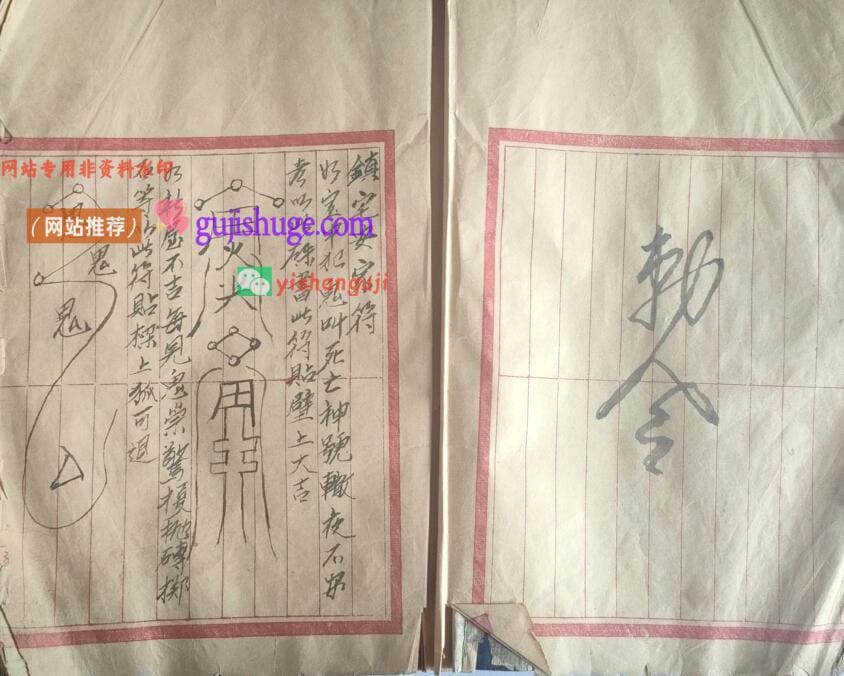 勅令
鎮宅安宅符
如家中犯鬼叫死亡神號轍夜不安
者以硃書此符貼壁上大吉
用
鬼
鬼
屈不吉每見鬼祟驚擾抛磚擲
等以此符貼樑上狐可退
网站专用非资料水印
(网站推荐)
gujishuge.com
yishanguji